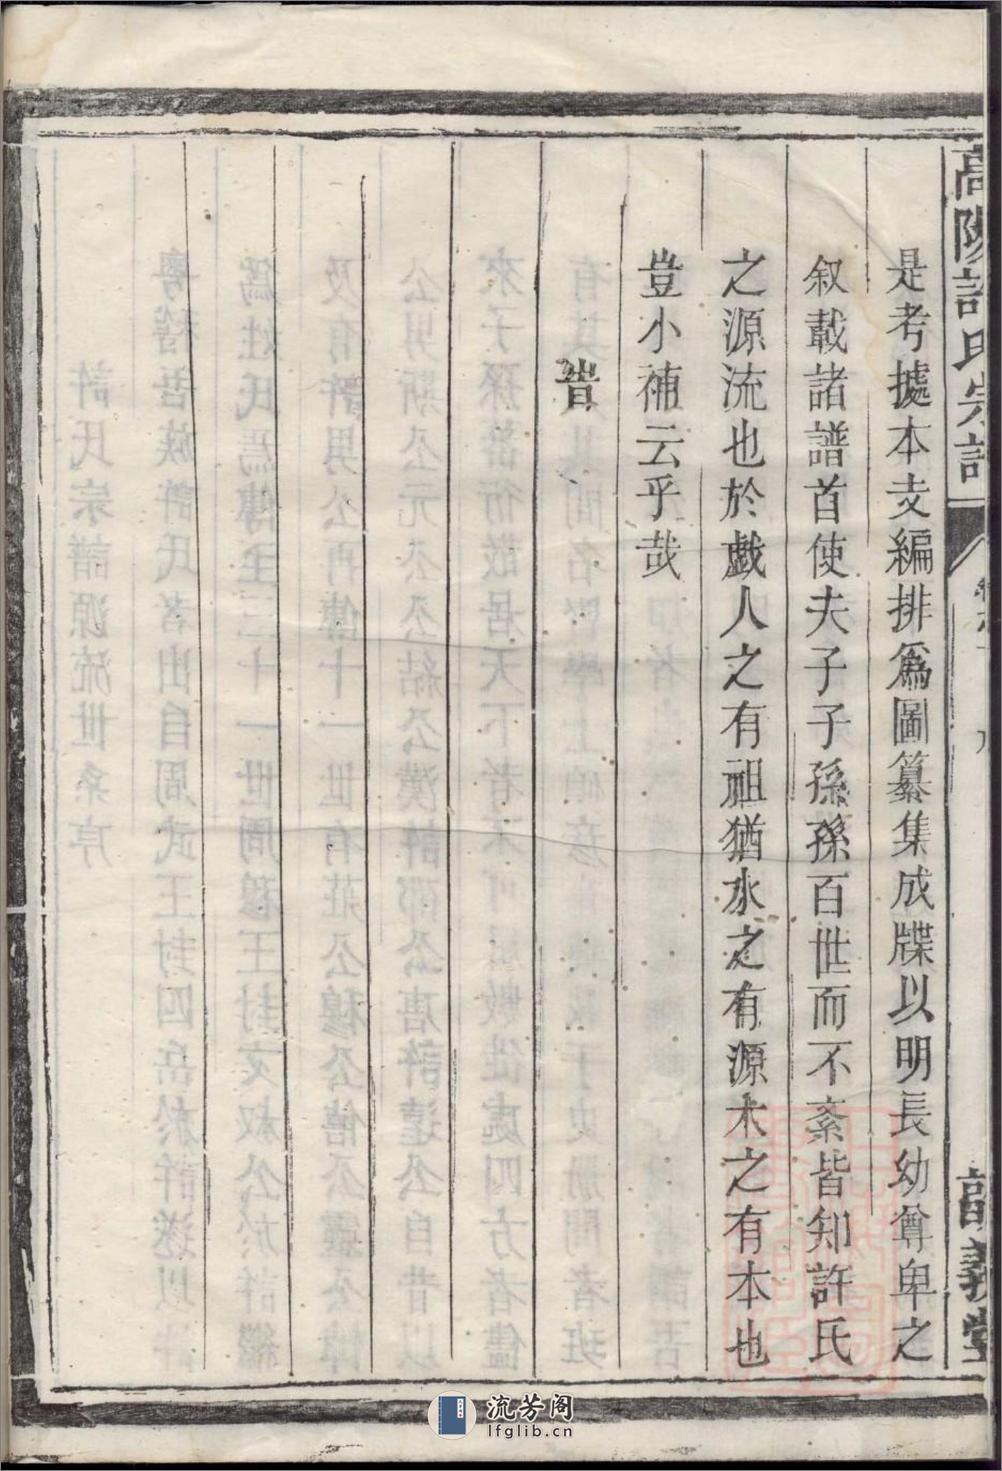 高陽許氏宗譜
是考據本支編排爲圖纂集成牒以明長幼尊卑之
叙載諸譜首使夫子子孫孫百世而不紊皆知許氏
之源流也於戲人之有祖猶水之有源木之有本也
豈小補云乎哉
旹
義堂
流芳阁
lfglib.cn